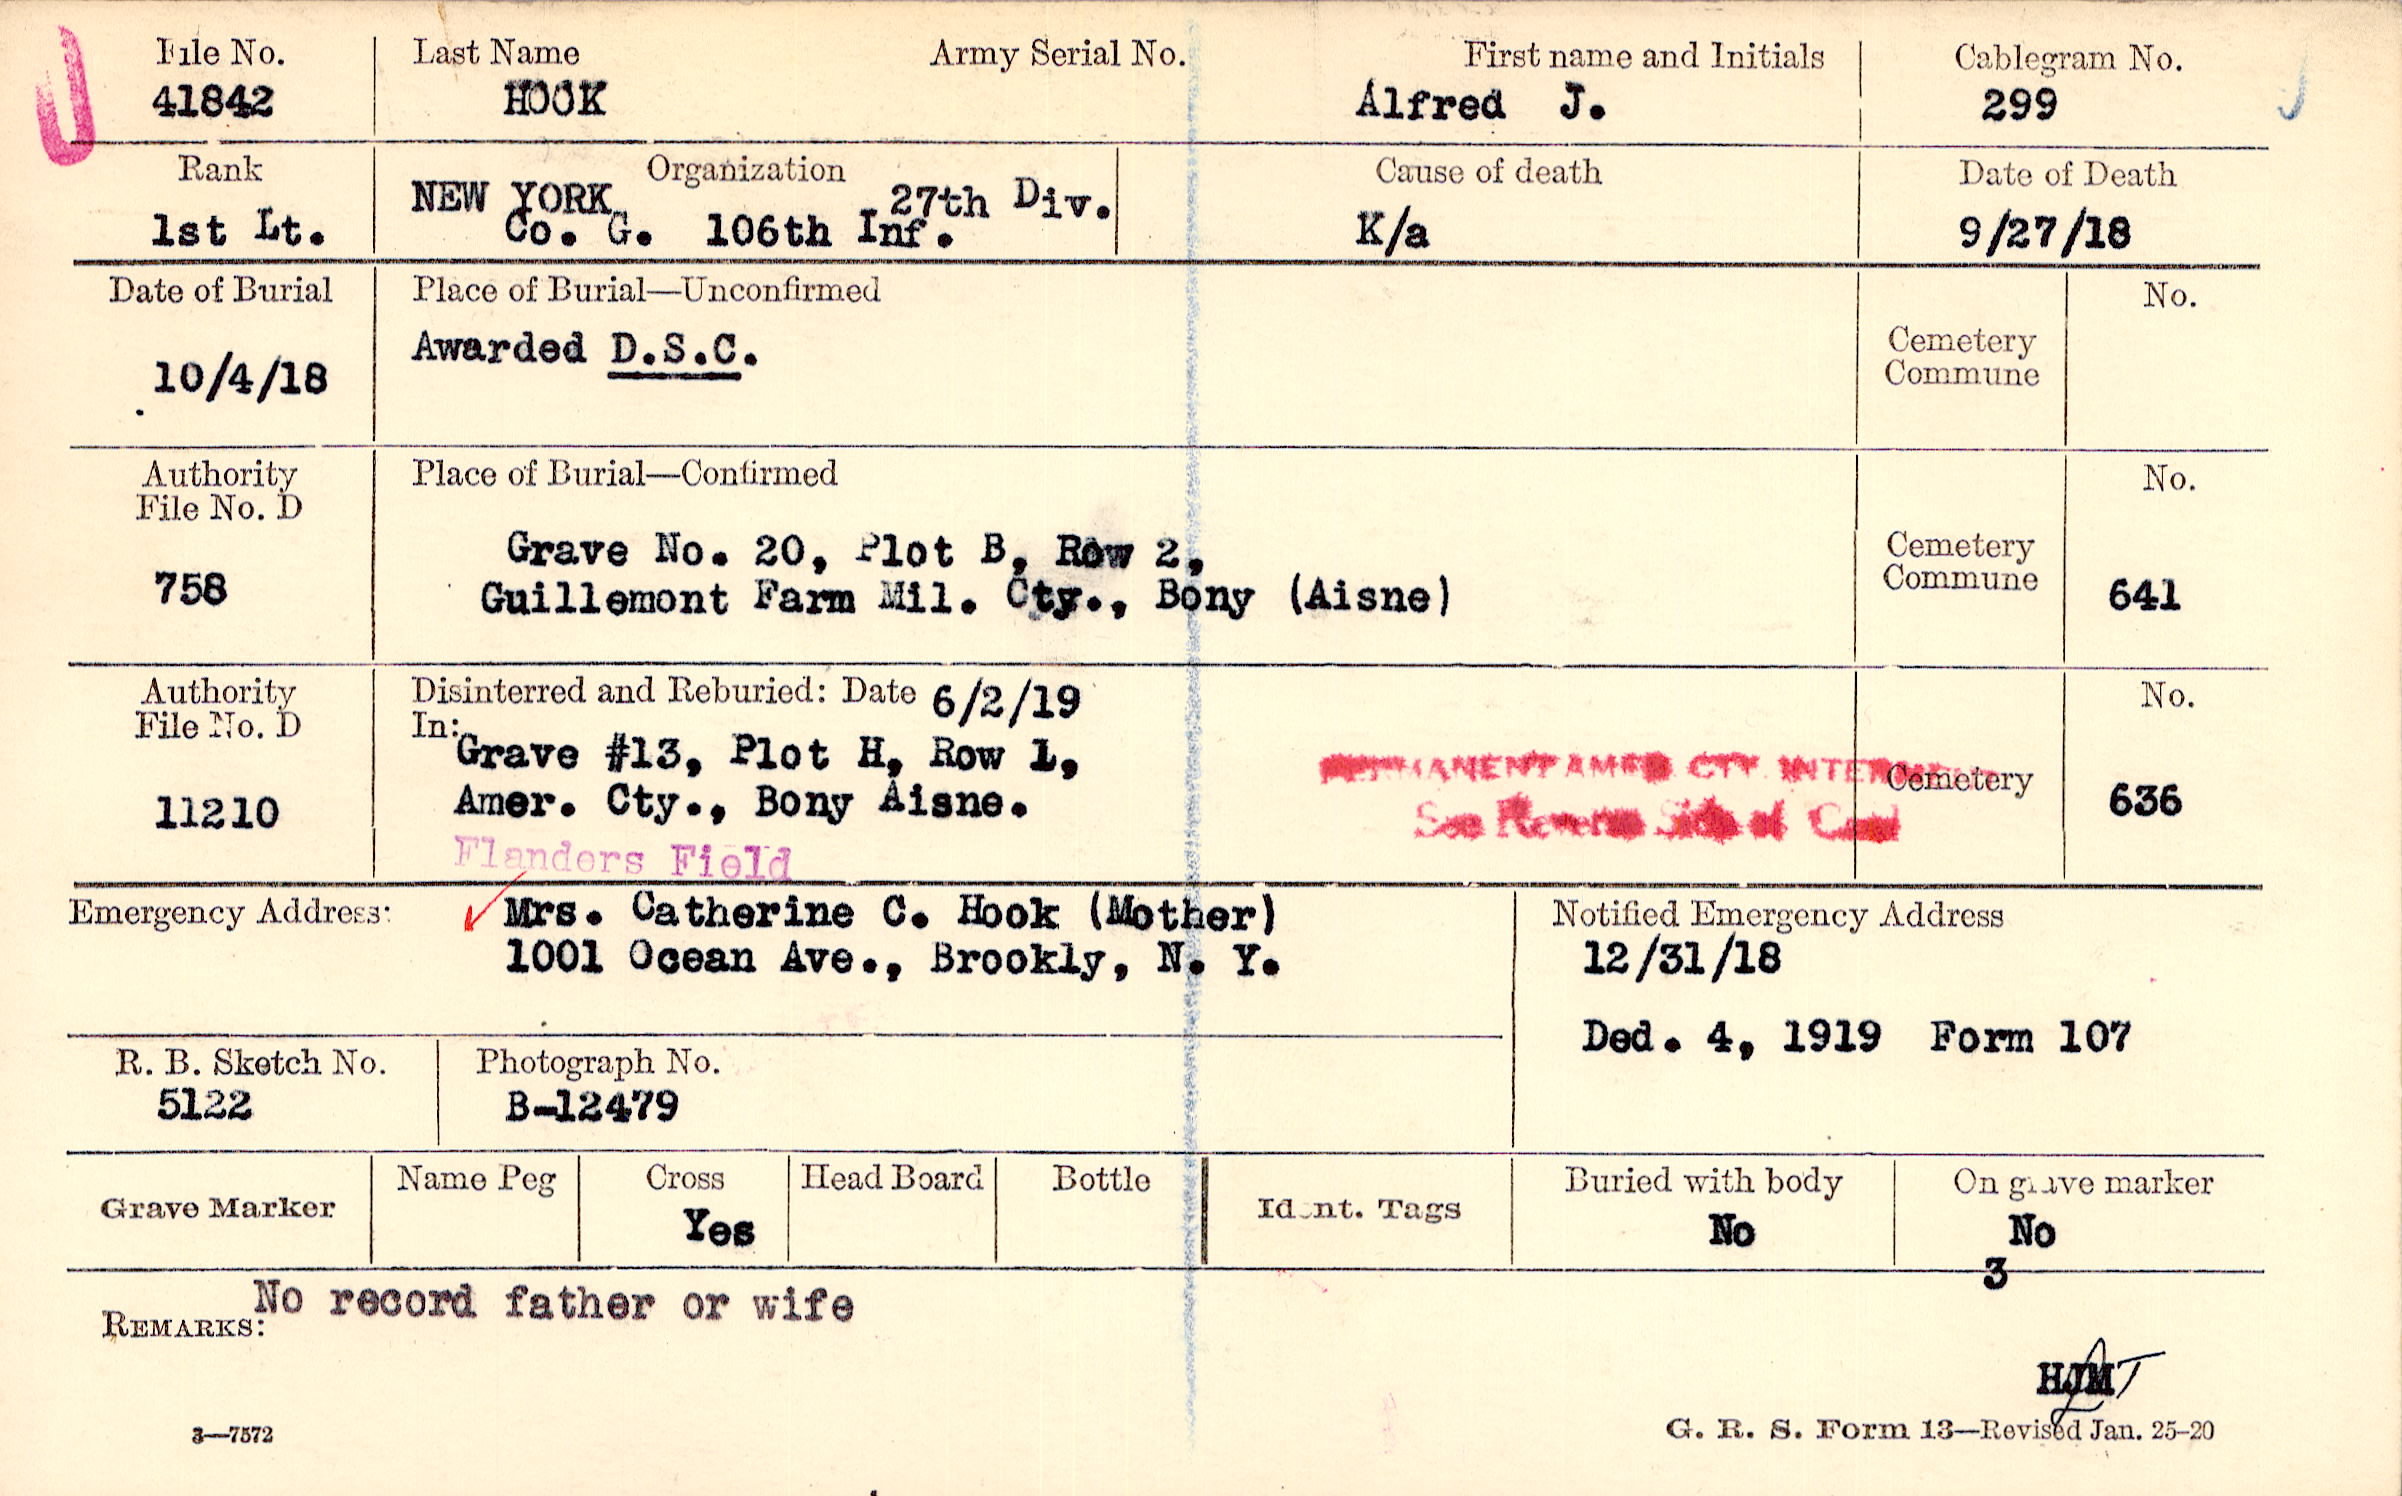 File No.
41842
Last Name
HOOK
Army Serial No.
First name and Initials
Alfred J.
Cablegram No.
299
Rank
1st Lt.
Organization
NEW YORK 27th Div.
Co. G. 106th Inf.
Cause of death
K/a
Date of Death
9/27/18
Date of Burial
10/4/18
Place of Burial—Unconfirmed
Awarded D.S.C.
Cemetery
Commune
No.
Authority
File No. D
758
Place of Burial—Confirmed
Grave No. 20, Plot B, Row 2,
Guillemont Farm Mil. Cty., Bony (Aisne)
Cemetery
Commune
No.
641
Authority
File No. D
11210
Disinterred and Reburied: Date 6/2/19
In:
Grave #13, Plot H, Row 1,
Amer. Cty., Bony Aisne.
Flanders Field
PERMANENT AMER CTY. INTERMENT
See Reverse Side of Card
Cemetery
No.
636
Emergency Address:
Mrs. Catherine C. Hook (Mother)
1001 Ocean Ave., Brookly, N. Y.
Notified Emergency Address
12/31/18
Ded. 4, 1919 Form 107
R. B. Sketch No.
5122
Photograph No.
B-12479
Grave Marker
Name Peg
Cross
Yes
Head Board
Bottle
Ident. Tags
Buried with body
No
On grave marker
No
3
No record father or wife
REMARKS:
HJM
3—7572
G. R. S. Form 13—Revised Jan. 25-20